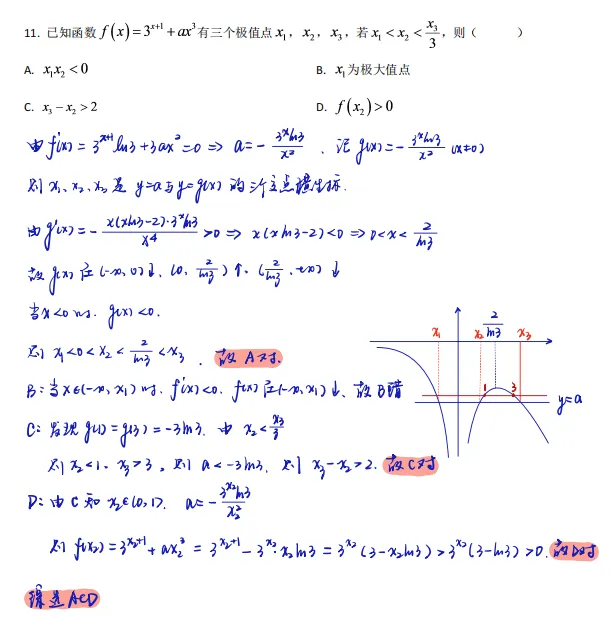 11. 已知函数 f(x)=3^{x+1}+ax^3 有三个极值点 x_1，x_2，x_3，若 x_1<x_2<\frac{x_3}{3}，则（ ）
A. x_1x_2<0 B. x_1为极大值点
C. x_3-x_2>2 D. f(x_2)>0
由f'(x)=3^{x+1}ln3+3ax^2=0 ⇒ a=-\frac{3^xln3}{x^2}、记 g(x)=-\frac{3^xln3}{x^2} (x≠0)
则 x_1、x_2、x_3是 y=a与y=g(x) 的三个交点横坐标.
由g'(x)=-\frac{x(xln3-2)·3^xln3}{x^4}>0 ⇒ x(xln3-2)<0 ⇒ 0<x<\frac{2}{ln3}
故 g(x) 在(-∞,0)↓、(0,\frac{2}{ln3})↑、(\frac{2}{ln3},+∞)↓
当x<0时. g(x)<0.
则 x_1<0<x_2<\frac{2}{ln3}<x_3 . 故A对.
B: 当x∈(-∞,x_1)时. f'(x)<0. f(x)在(-∞,x_1)↓、故B错
C: 发现g(1)=g(3)=-3ln3. 由 x_2<\frac{x_3}{3}
则 x_2<1、x_3>3，则 a<-3ln3. 则 x_3-x_2>2. 故C对
D: 由C知 x_2∈(0,1). a=-\frac{3^{x_2}ln3}{x_2^2}
则 f(x_2)=3^{x_2+1}+ax_2^3=3^{x_2+1}-3^{x_2}·x_2ln3=3^{x_2}(3-x_2ln3)>3^{x_2}(3-ln3)>0. 故D对
综选ACD
\frac{2}{ln3}
x_1 x_2 x_3
1 3
y=a